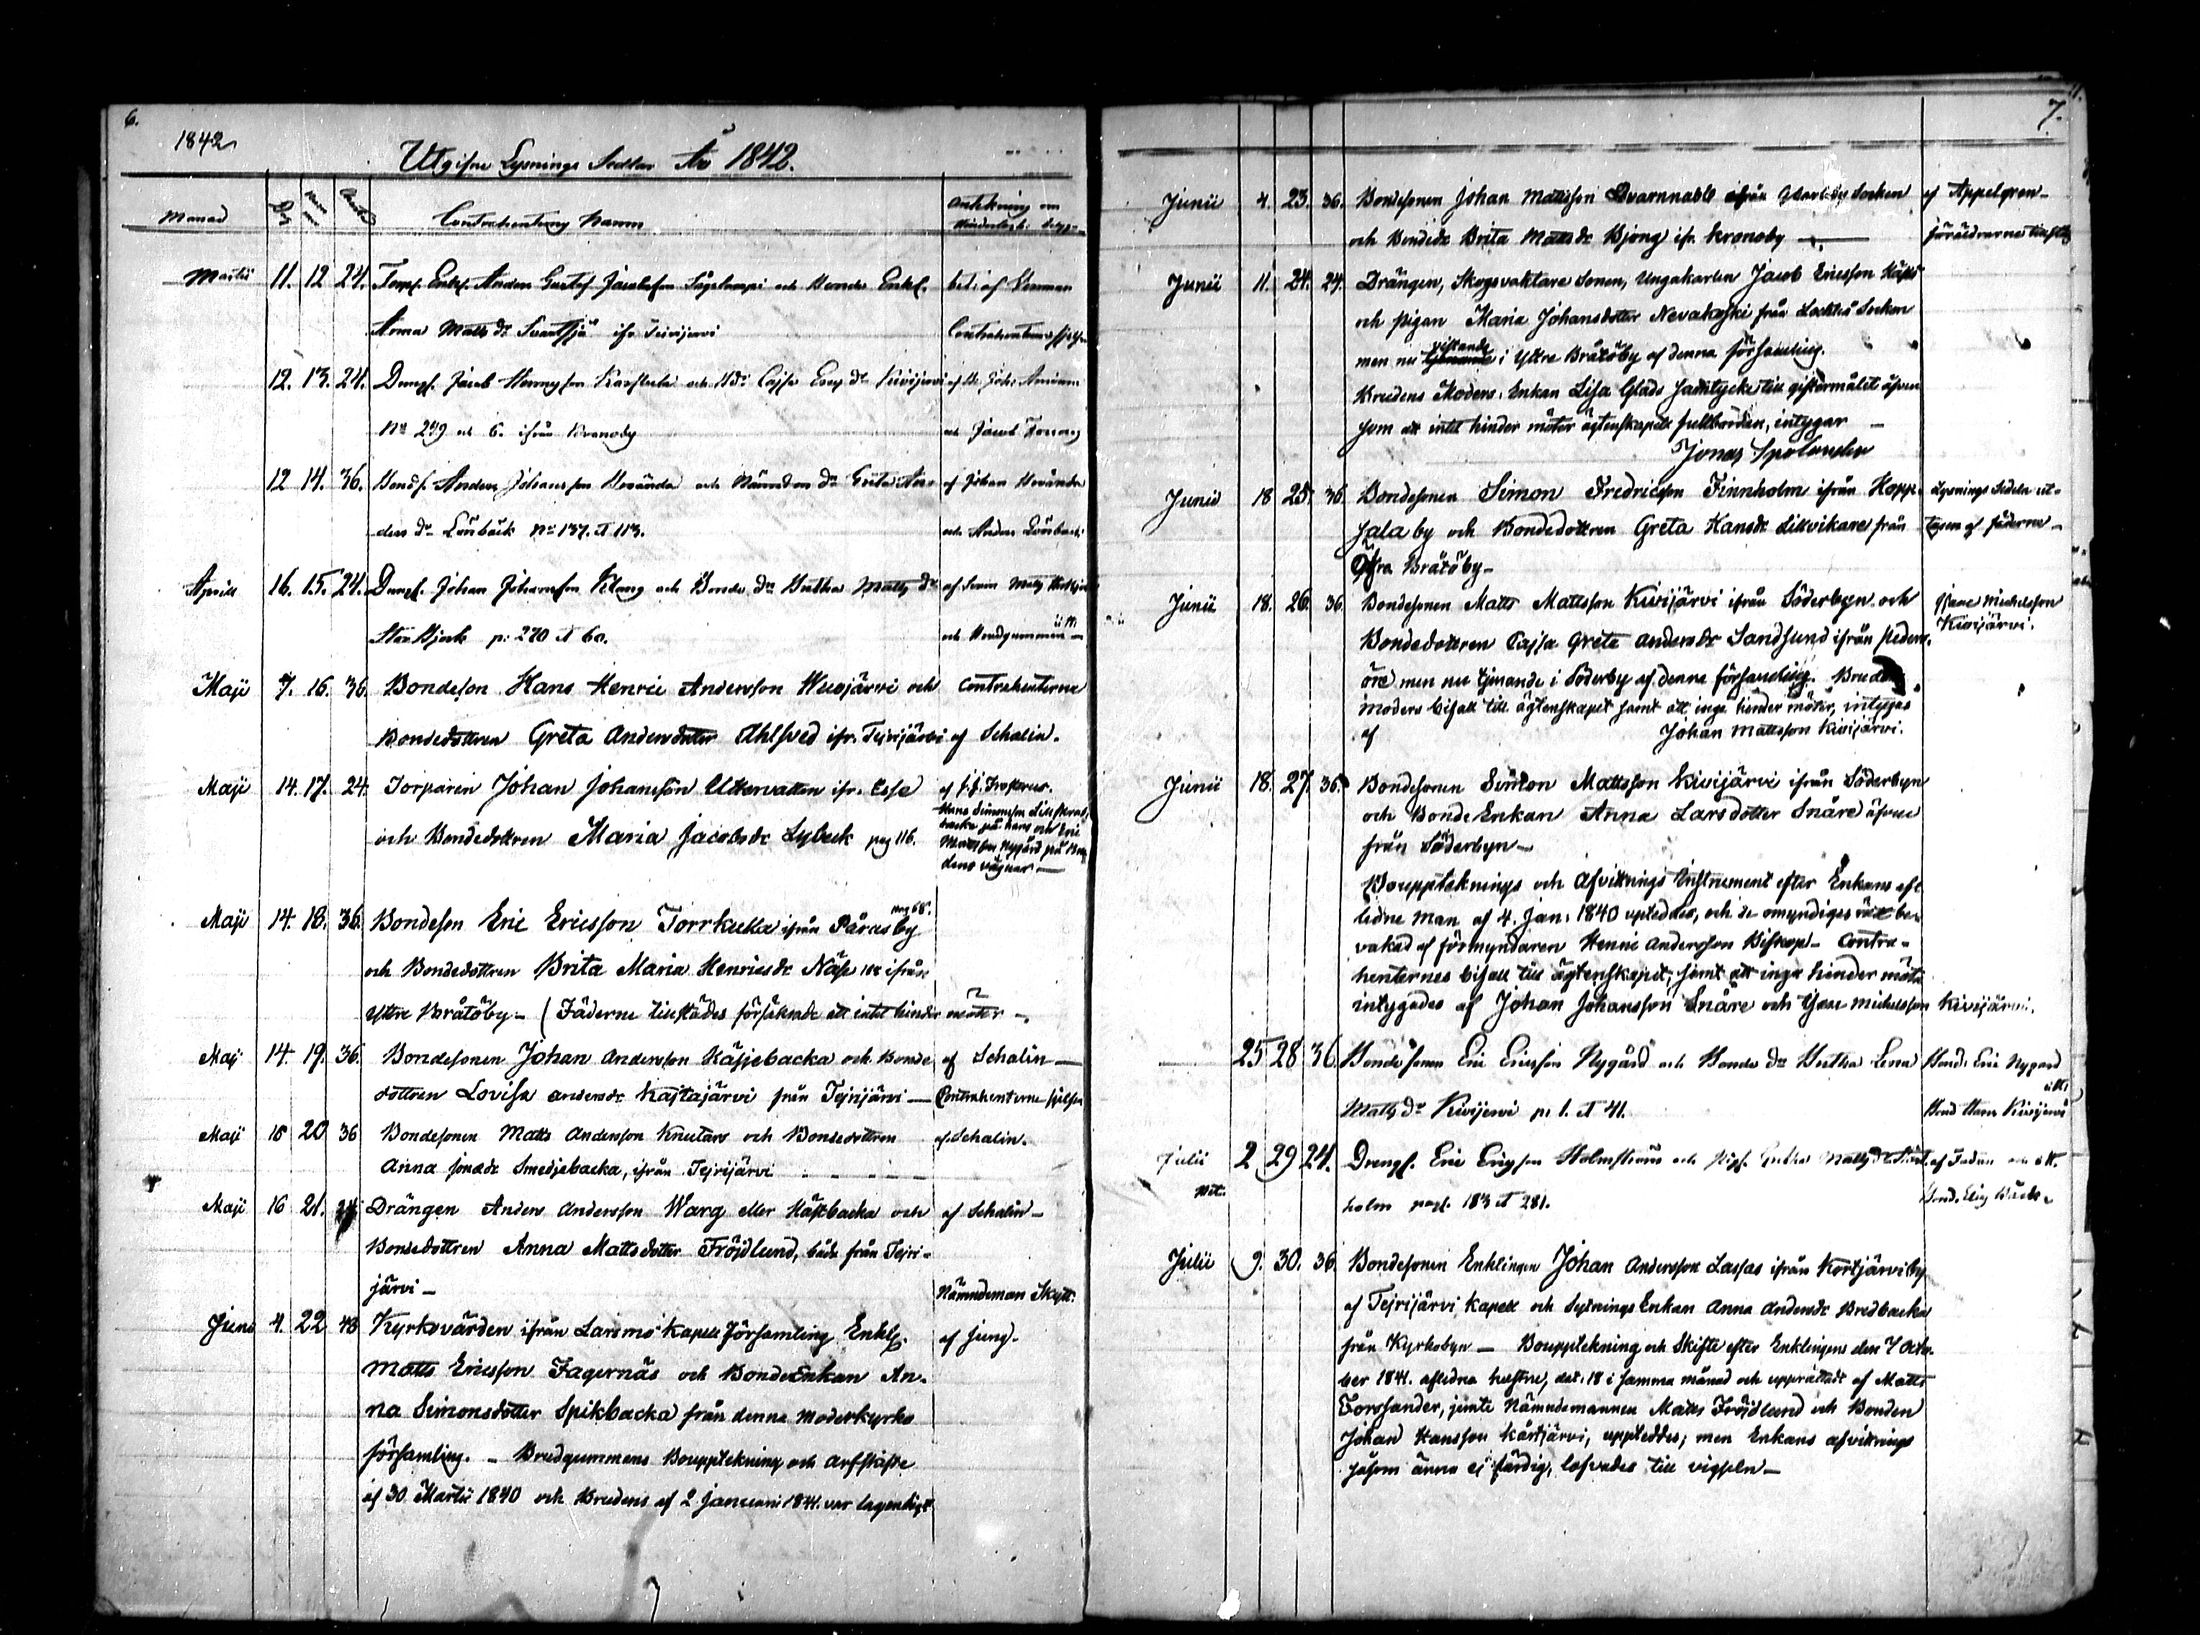 6.
1842
Utgifne Lysnings Sedlar År 1842.
Månad Contrahenternes Namn Anteckning om
Martii 11. 12 24. Torp. Enkl. Anders Gustaf Jacobsson Sågelampi och Bonde Enk. bet. af
Anna Matts dr Svartsjö ifr. Teirijervi Contrahenterne sjelfva
12. 13. 24. Drengs. Jacob och Bdr Cajsa dr Kivijervi af
No 249 och 6. ifrån Kronoby och Jacob
12 14. 36. Bonds. Anders Johansson och Nämndem. dr Greta An- af Johan
ders dr Lönbäck No 137. et 113. och Anders Lönbäck
April 16. 15. 24. Drengs. Johan Johansson Klang och Bonde dr Bretha Matts dr af Matts
Stor Bjork p. 270 et 60. och Brudgummen
Maji 7. 16. 36. Bondeson Hans Henric Andersson Wuojärvi och Contrahenterne
Bondedottren Greta Andersdotter Ahlsved ifr. Tejrijärvi af Schalin.
Maji 14. 17. 24. Torparen Johan Johansson Uttervatten ifr. Esse af J. J.
Hans Simonsson
och Bondedottren Maria Jacobsdr Lybeck pag 116. backa på hans och Eric
Mattsson Nygård på Bru
dens vägnar —
Maji 14. 18. 36. Bondeson Eric Ericsson Torrkulla ifrån Påras by pag 68.
och Bondedottren Brita Maria Henricsdr Näse ifrån
Yttre Bråtöby — (Fäderne tillstädes försäkrade att intet hinder möter —
Maji 14. 19. 36. Bondesonen Johan Andersson Käsjebacka och Bonde af Schalin —
dottren Lovisa Andersdr Kajtajärvi från Tejrijärvi — Contrahenterne sjelfva
Maji 15 20 36 Bondesonen Matts Andersson Knutars och Bondedottren af Schalin.
Anna Jonædr Smedjebacka, ifrån Tejrijärvi
Maji 16 21. 24 Drängen Anders Andersson Warg eller Kästbacka och af Schalin —
Bondedottren Anna Mattsdotter Fröjdlund, både från Tejri-
järvi — Nämndeman Skytt.
Junii 4. 22 48 Kyrkovärden ifrån Larsmo Kapell Församling Enkl. af Jung.
Matts Ericsson Fagernäs och BondeEnkan An-
na Simonsdotter Spikbacka från denna Moderkyrko
församling. — Brudgummens Bouppteckning och Arfskifte
af 30 Martii 1840 och Brudens af 2 Januarii 1841. var lagenligt
7.
Junii 4. 23. 36. Bondesonen Johan Mattsson Qvarnnabb ifrån Socken af Appelgren —
och Bondedr Brita Mattsdr Bjong ifr. Kronoby — föräldrarnes
Junii 11. 24. 24. Drängen, Skogsvaktare Sonen, Ungakarlen Jacob Ericsson Käpp
och pigan Maria Johansdotter Nevakoski från Lochteå Socken
men nu vistande i Yttre Bråtöby af denna församling.
Brudens Moders, Enkan Lisa Glads samtycke till giftermålet äfven
som att intet hinder möter ägtenskapets fullbordan, intygar —
Jonas Spolander
Junii 18 25. 36. Bondesonen Simon Fredricsson Finnholm ifrån Hopp- Lysnings Sedeln ut-
sala by och Bondedottren Greta Hansdr Lillvikare från tagen af fäderne —
Öfra Bråtöby —
Junii 18. 26. 36. Bondesonen Matts Mattsson Kivijärvi ifrån Söderbyn och Isaac Michelsson
Kivijärvi.
Bondedottren Cajsa Greta Andersdr Sandsund ifrån Peders-
öre men nu tjenande i Söderby af denna församling. Brudens
Moders bifall till ägtenskapet samt att inga hinder möter, intygas
af Johan Mattsson Kivijärvi.
Junii 18. 27. 36. Bondesonen Simon Mattsson Kivijärvi ifrån Söderbyn
och BondeEnkan Anna Larsdotter Snåre äfven
från Söderbyn —
Boupptecknings och Afvittrings Instrument efter Enkans afl
ledne man af 4. Jan: 1840 upteddes, och de omyndiges rätt be-
vakad af förmyndaren Henric Andersson Biskop — Contra-
henternes bifall till ägtenskapet, samt att inga hinder möta
intygades af Johan Johansson Snåre och Isaac Michelsson Kivijärvi.
25 28 36. Bondesonen Eric Ericsson Nygård och Bonde dr Bretha Lena Bond. Eric Nygård
Matts dr Kivijervi p. 1. et 41. Bond Hans Kivijervi
Julii 2 29 24. Drengs. Eric Ericsson Holmström och Pig. Greta Matts dr af Fadren
holm pag. 183 et 281. Bond. Eric
Julii 9. 30. 36. Bondesonen Enklingen Johan Andersson Lassas ifrån Kortjärviby
af Tejrijärvi Kapell och SytningsEnkan Anna Andersdr Bredbacka
från Kyrkobyn — Bouppteckning och Skifte efter Enklingens den 7 Octo-
ber 1841. aflidna hustru, dat: 18 i samma månad och upprättadt af Matts
Forssander, jemte Nämndemannen Matts Fröjdlund och Bonden
Johan Hansson Kårtjärvi, uppteddes; men Enkans afvittrings
såsom ännu ej färdig, lofvades till vigseln —